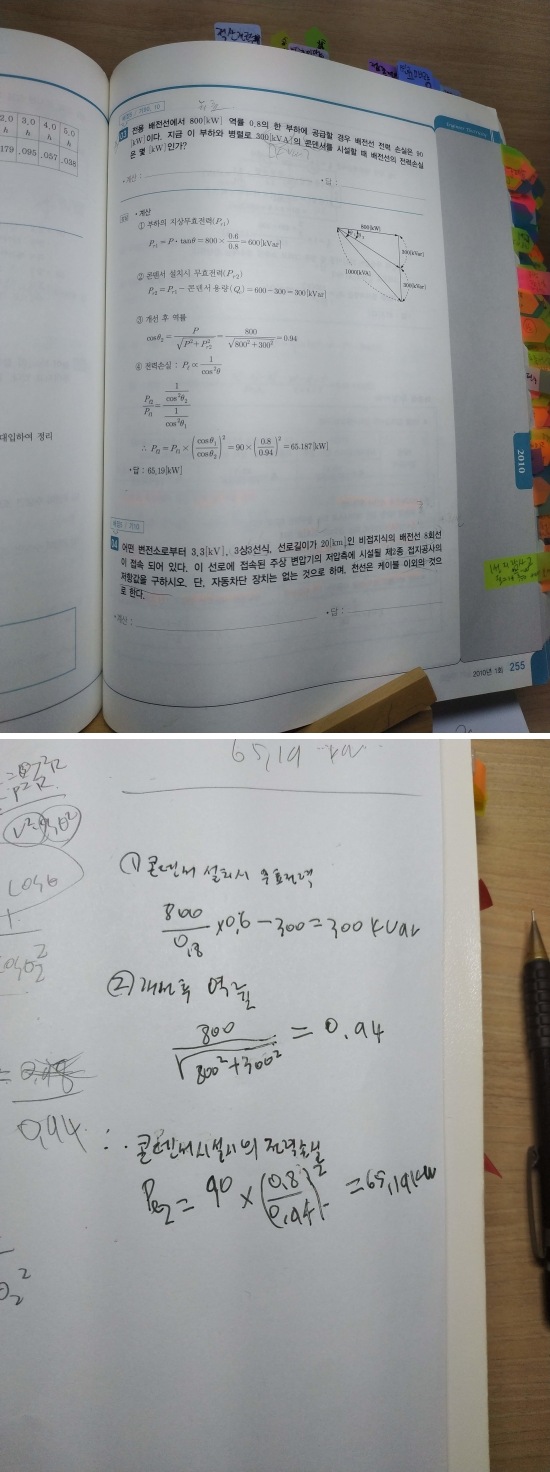 2.0 3.0 4.0 5.0
h h h h
179 .095 .057 .038
대입하여 정리
13 전용 배전선에서 800[kW] 역률 0.8의 한 부하에 공급할 경우 배전선 전력 손실은 90
[kW]이다. 지금 이 부하와 병렬로 300[kVA]의 콘덴서를 시설할 때 배전선의 전력손실
은 몇 [kW]인가?
• 계산 : • 답 :
• 계산
① 부하의 지상무효전력(Pr1)
Pr1 = P · tanθ = 800 × 0.6/0.8 = 600[kVar]
② 콘덴서 설치시 무효전력(Pr2)
Pr2 = Pr1 − 콘덴서 용량(Qc) = 600 − 300 = 300[kVar]
③ 개선 후 역률
cosθ2 = P/√(P²+Pr2²) = 800/√(800²+300²) = 0.94
④ 전력손실 : Pl ∝ 1/cos²θ
Pl2/Pl1 = (1/cos²θ2)/(1/cos²θ1)
∴ Pl2 = Pl1 × (cosθ1/cosθ2)² = 90 × (0.8/0.94)² = 65.187[kW]
• 답 : 65.19[kW]
800[kW]
300[kVar]
1000[kVA]
300[kVar]
14 어떤 변전소로부터 3.3[kV], 3상3선식, 선로길이가 20[km]인 비접지식의 배전선 8회선
이 접속 되어 있다. 이 선로에 접속된 주상 변압기의 저압측에 시설될 제2종 접지공사의
저항값을 구하시오. 단, 자동차단 장치는 없는 것으로 하며, 전선은 케이블 이외의 것으
로 한다.
• 계산 : • 답 :
2010
2010년 1회 255
65,19 kW
① 콘덴서 설치시 무효전력
800/0.8 × 0.6 − 300 = 300 kVar
② 개선후 역률
800/√(800²+300²) = 0.94
0.94
∴ 콘덴서시설시의 전력손실
Pl2 = 90 × (0.8/0.94)² = 65,19 kW